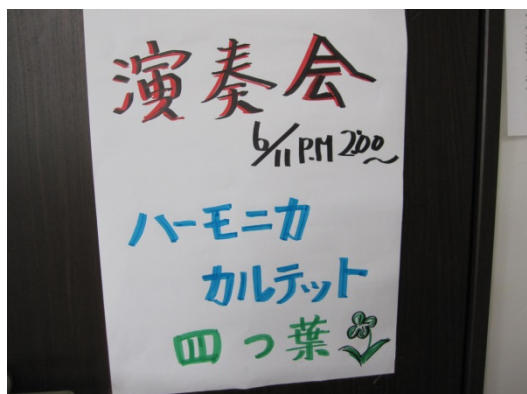 演奏会
6/11 P.M 2:00〜
ハーモニカ
カルテット
四つ葉